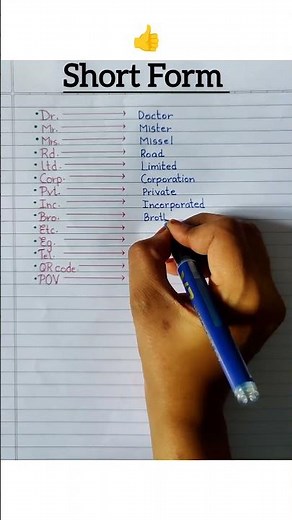 Short Form
• Dr. → Doctor
• Mr. → Mister
• Mrs. → Missel
• Rd. → Road
• Ltd. → Limited
• Corp. → Corporation
• Pvt. → Private
• Inc. → Incorporated
• Bro. → Brotl
• Etc. →
• Eg. →
• Tel. →
• QR code. →
• POV →